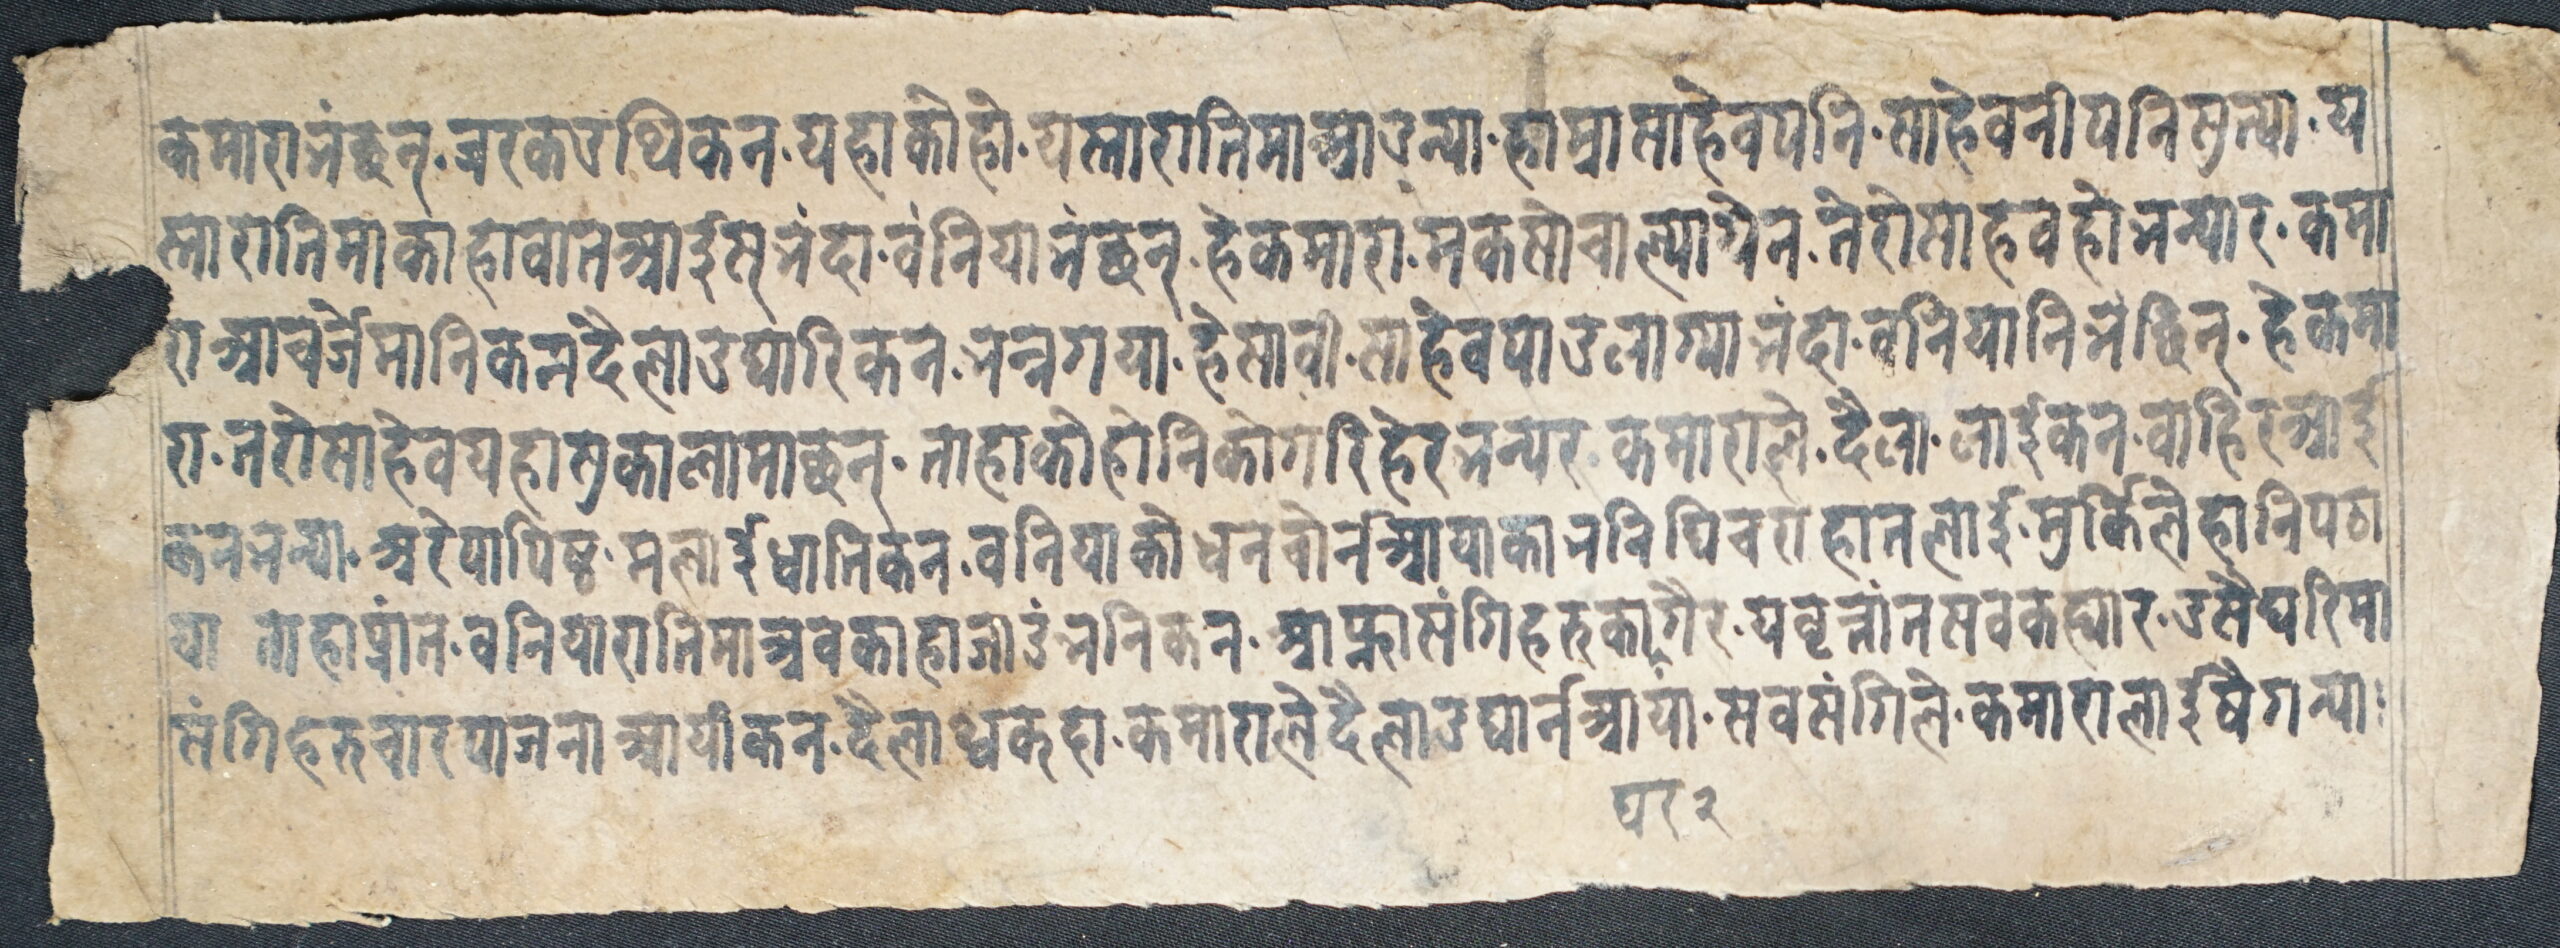 कमाराभंछन्·चरकउथिकन·यहाकोहो·यस्तारातिमाआउन्या·हाम्रासाहेवपनि·साहेवनीपनिसुत्या·य
स्तारातिमाकांहावातआईस्भंदा·वंनियाभंछन्·हेकमारा·मकसोचाल्पायेन·तेरोसाहवहोभन्यार·कमा
राआचर्जेमानिकनदैलाउघारिकन·भन्नगया·हेसावी·साहेवपाउलाग्याभंदा·वनियानिभंछिन्·हेकमा
रा·तरोसाहेवयहासुकालामाछन्·ताहाकोहोनिकोगरिहेरभन्यर·कमाराले·दैला·लाईकन·वाहिरआई
कनभन्या·अरेपापिष्ठ·मलाईधातिकन·वनियाकोधनचोर्नआयाकाभनिपिचराहातलाई·मुर्किलेहानिपठा
या ताहाप्रांत·वनियारातिमाअवकाहाजाउंभनिकन·आफ्नासंगिहरुकागैर·यवृत्तांतसवकह्यार·उसैघरिमा
संगिहरुचारपाजनाआयीकन·दैलाथ्वकहा·कमारालेदैलाउघार्नआयां·सवसंगिले·कमारालाईषैगन्या
घर२